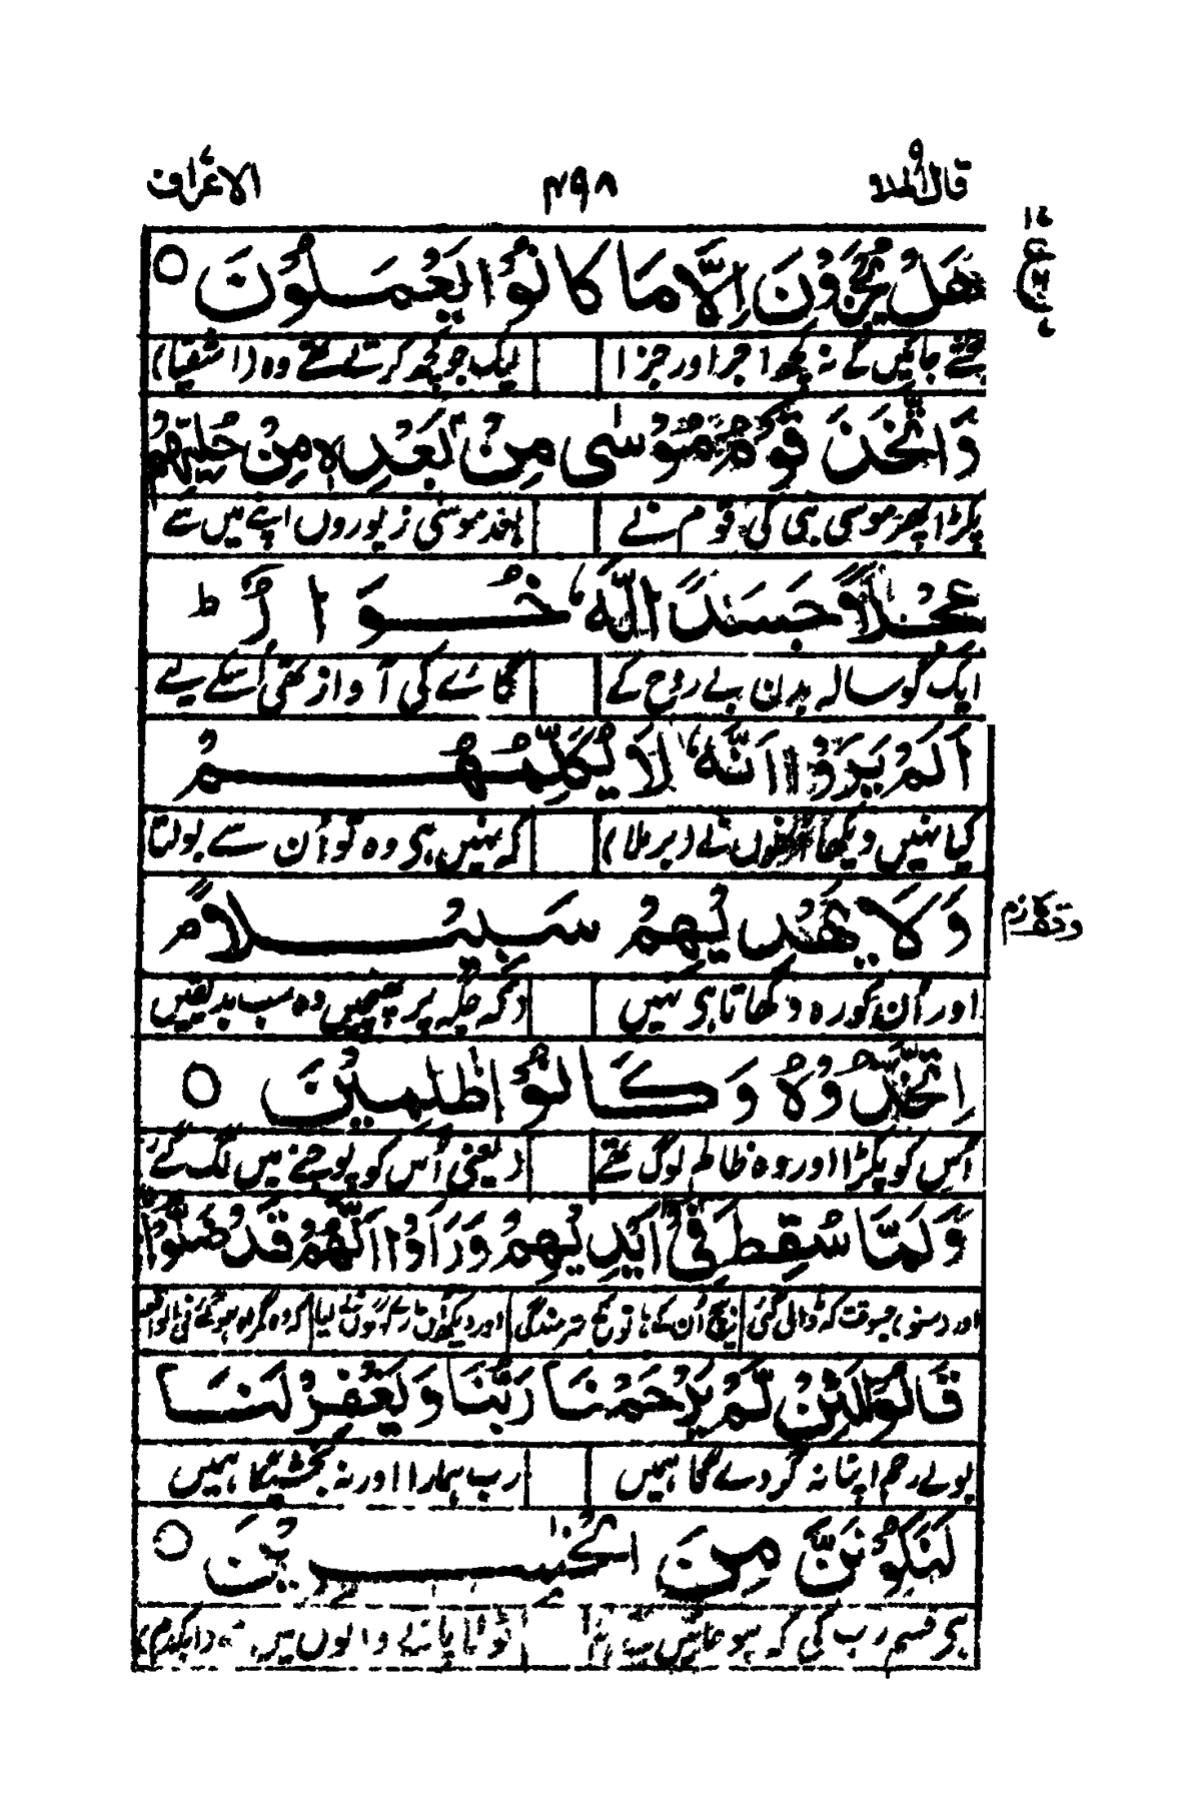 قال الملا ۹ ۴۹۸ الاعراف
هَلْ يُجْزَوْنَ اِلَّا مَا كَانُوْا يَعْمَلُوْنَ ○
جتے جائیں گے نہ کچھ اجر اور جزا لیک جو کچھ کرتے تھے وہ (اشقیا)
وَاتَّخَذَ قَوْمُ مُوْسٰى مِنْۢ بَعْدِهٖ مِنْ حُلِيِّهِمْ
پکڑا پھر موسی ہی کی قوم نے بعد موسٰی زیوروں اپنے میں سے
عِجْلًا جَسَدًا لَّهٗ خُوَارٌ ؕ
ایک گوسالہ بدن بے روح کے گائے کی آواز تھی اُسکے لیے
اَلَمْ يَرَوْا اَنَّهٗ لَا يُكَلِّمُهُمْ
کیا نہیں دیکھا اُنھوں نے (برملا) کہ نہیں ہی وہ تو اُن سے بولتا
وَلَا يَهْدِيْهِمْ سَبِيْلًا م
وقف لازم
اور اُن کو رہ دکھاتا ہی نہیں
اِتَّخَذُوْهُ وَكَانُوْا ظٰلِمِيْنَ ○
اُس کو پکڑا اور وہ ظالم لوگ تھے (یعنی اُس کو پوجنے میں لگ گئے)
وَلَمَّا سُقِطَ فِيْٓ اَيْدِيْهِمْ وَرَاَوْا اَنَّهُمْ قَدْ ضَلُّوْا
اور جسوقت کہ ڈالی گئی بیچ اُن کے ہاتوں شرمندگی
قَالُوْا لَئِنْ لَّمْ يَرْحَمْنَا رَبُّنَا وَيَغْفِرْ لَنَا
بولے رحم اپنا نہ گر دے گا ہمیں رب ہمارا اور نہ بخشیگا ہمیں
لَنَكُوْنَنَّ مِنَ الْخٰسِرِيْنَ ○
ہی قسم رب کی کہ ہو جائیں